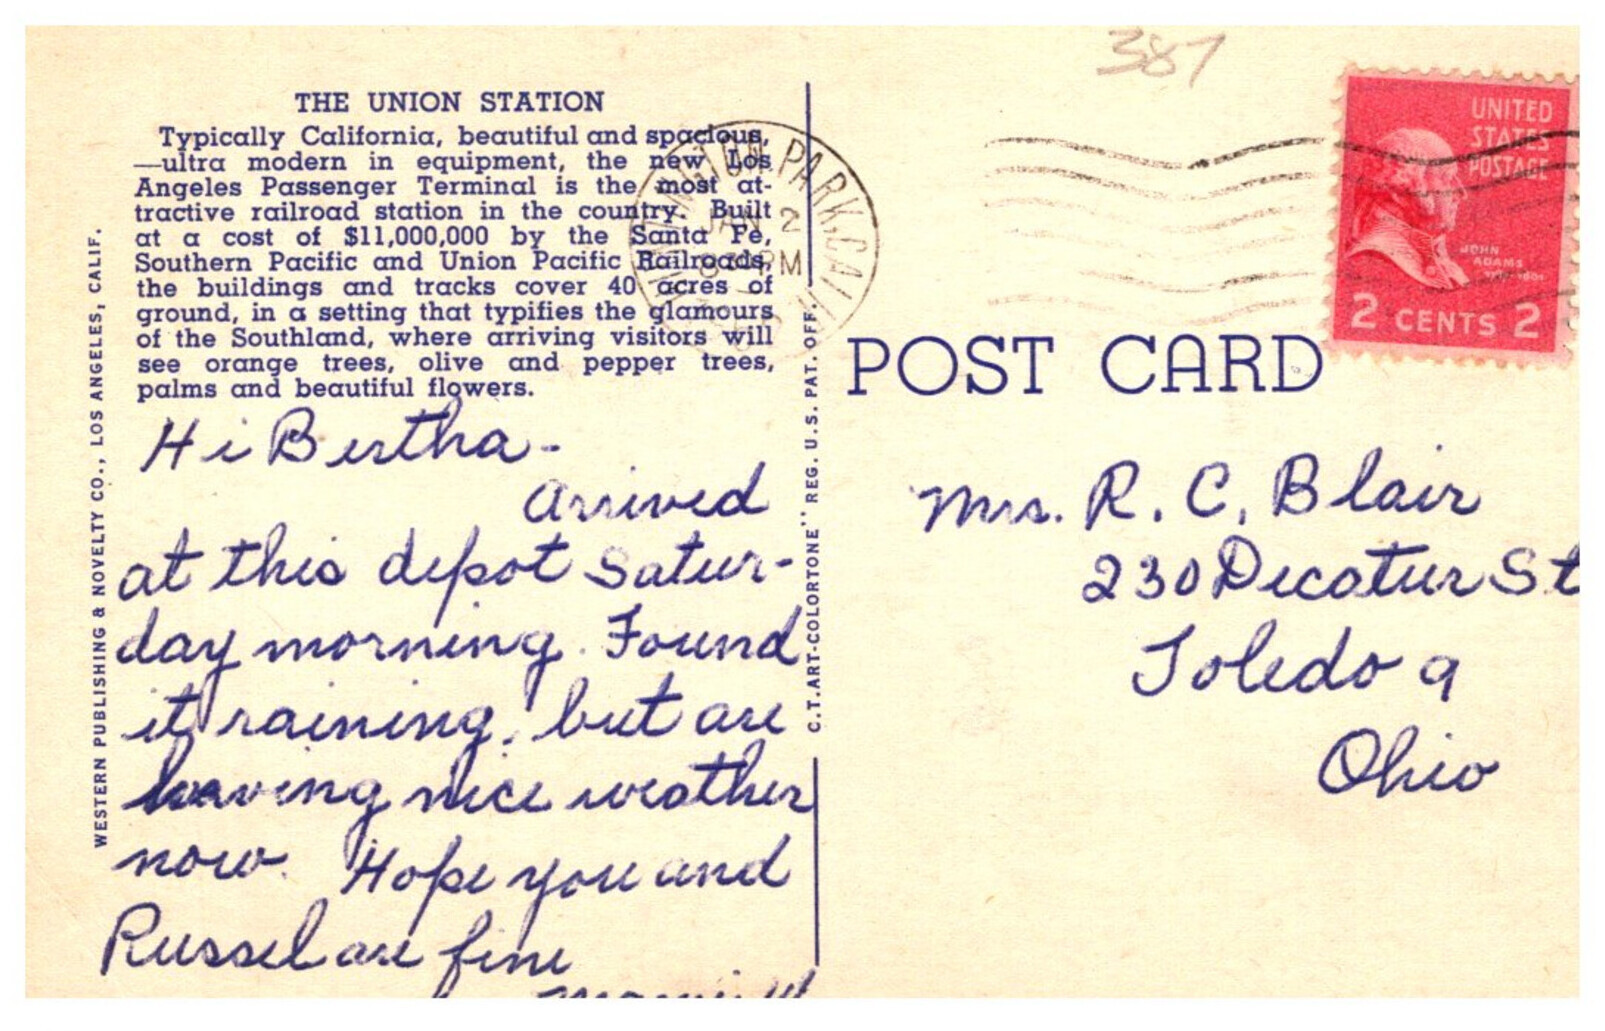 387
THE UNION STATION
Typically California, beautiful and spacious,
—ultra modern in equipment, the new Los
Angeles Passenger Terminal is the most at-
tractive railroad station in the country. Built
at a cost of $11,000,000 by the Santa Fe,
Southern Pacific and Union Pacific Railroads,
the buildings and tracks cover 40 acres of
ground, in a setting that typifies the glamours
of the Southland, where arriving visitors will
see orange trees, olive and pepper trees,
palms and beautiful flowers.
WESTERN PUBLISHING & NOVELTY CO., LOS ANGELES, CALIF.
Hi Bertha -
Arrived
at this depot Satur-
day morning. Found
it raining, but are
having nice weather
now. Hope you and
Russel are fine
C.T. ART-COLORTONE" REG. U.S. PAT. OFF.
HUNTINGTON PARK, CALIF.
JAN 2
PM
UNITED
STATES
POSTAGE
JOHN
ADAMS
2 CENTS 2
POST CARD
Mrs. R. C. Blair
230 Decatur St
Toledo 9
Ohio